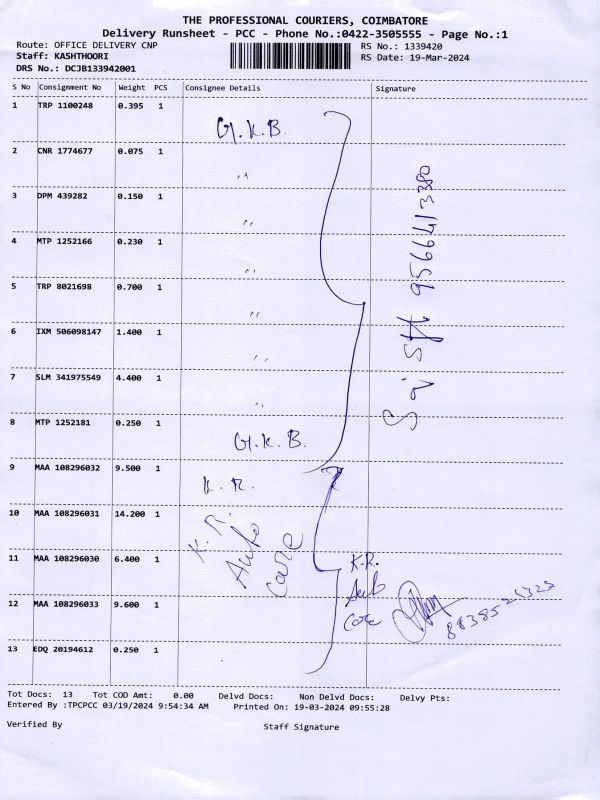 THE PROFESSIONAL COURIERS, COIMBATORE
Delivery Runsheet - PCC - Phone No.:0422-3505555 - Page No.:1
Route: OFFICE DELIVERY CNP RS No.: 1339420
Staff: KASHTHOORI RS Date: 19-Mar-2024
DRS No.: DCJB133942001
S No Consignment No Weight PCS Consignee Details Signature
1 TRP 1100248 0.395 1 G.K.B.
2 CNR 1774677 0.075 1 "
3 DPM 439282 0.150 1 "
4 MTP 1252166 0.230 1 "
5 TRP 8021698 0.700 1 "
6 IXM 506098147 1.400 1 "
7 SLM 341975549 4.400 1 "
8 MTP 1252181 0.250 1 G.K.B.
9566413380
9 MAA 108296032 9.500 1 K.R.
10 MAA 108296031 14.200 1 K.R.
Auto
care
11 MAA 108296030 6.400 1 K.R.
Auto
Care
12 MAA 108296033 9.600 1
13 EDQ 20194612 0.250 1
Tot Docs: 13 Tot COD Amt: 0.00 Delvd Docs: Non Delvd Docs: Delvy Pts:
Entered By :TPCPCC 03/19/2024 9:54:34 AM Printed On: 19-03-2024 09:55:28
Verified By Staff Signature